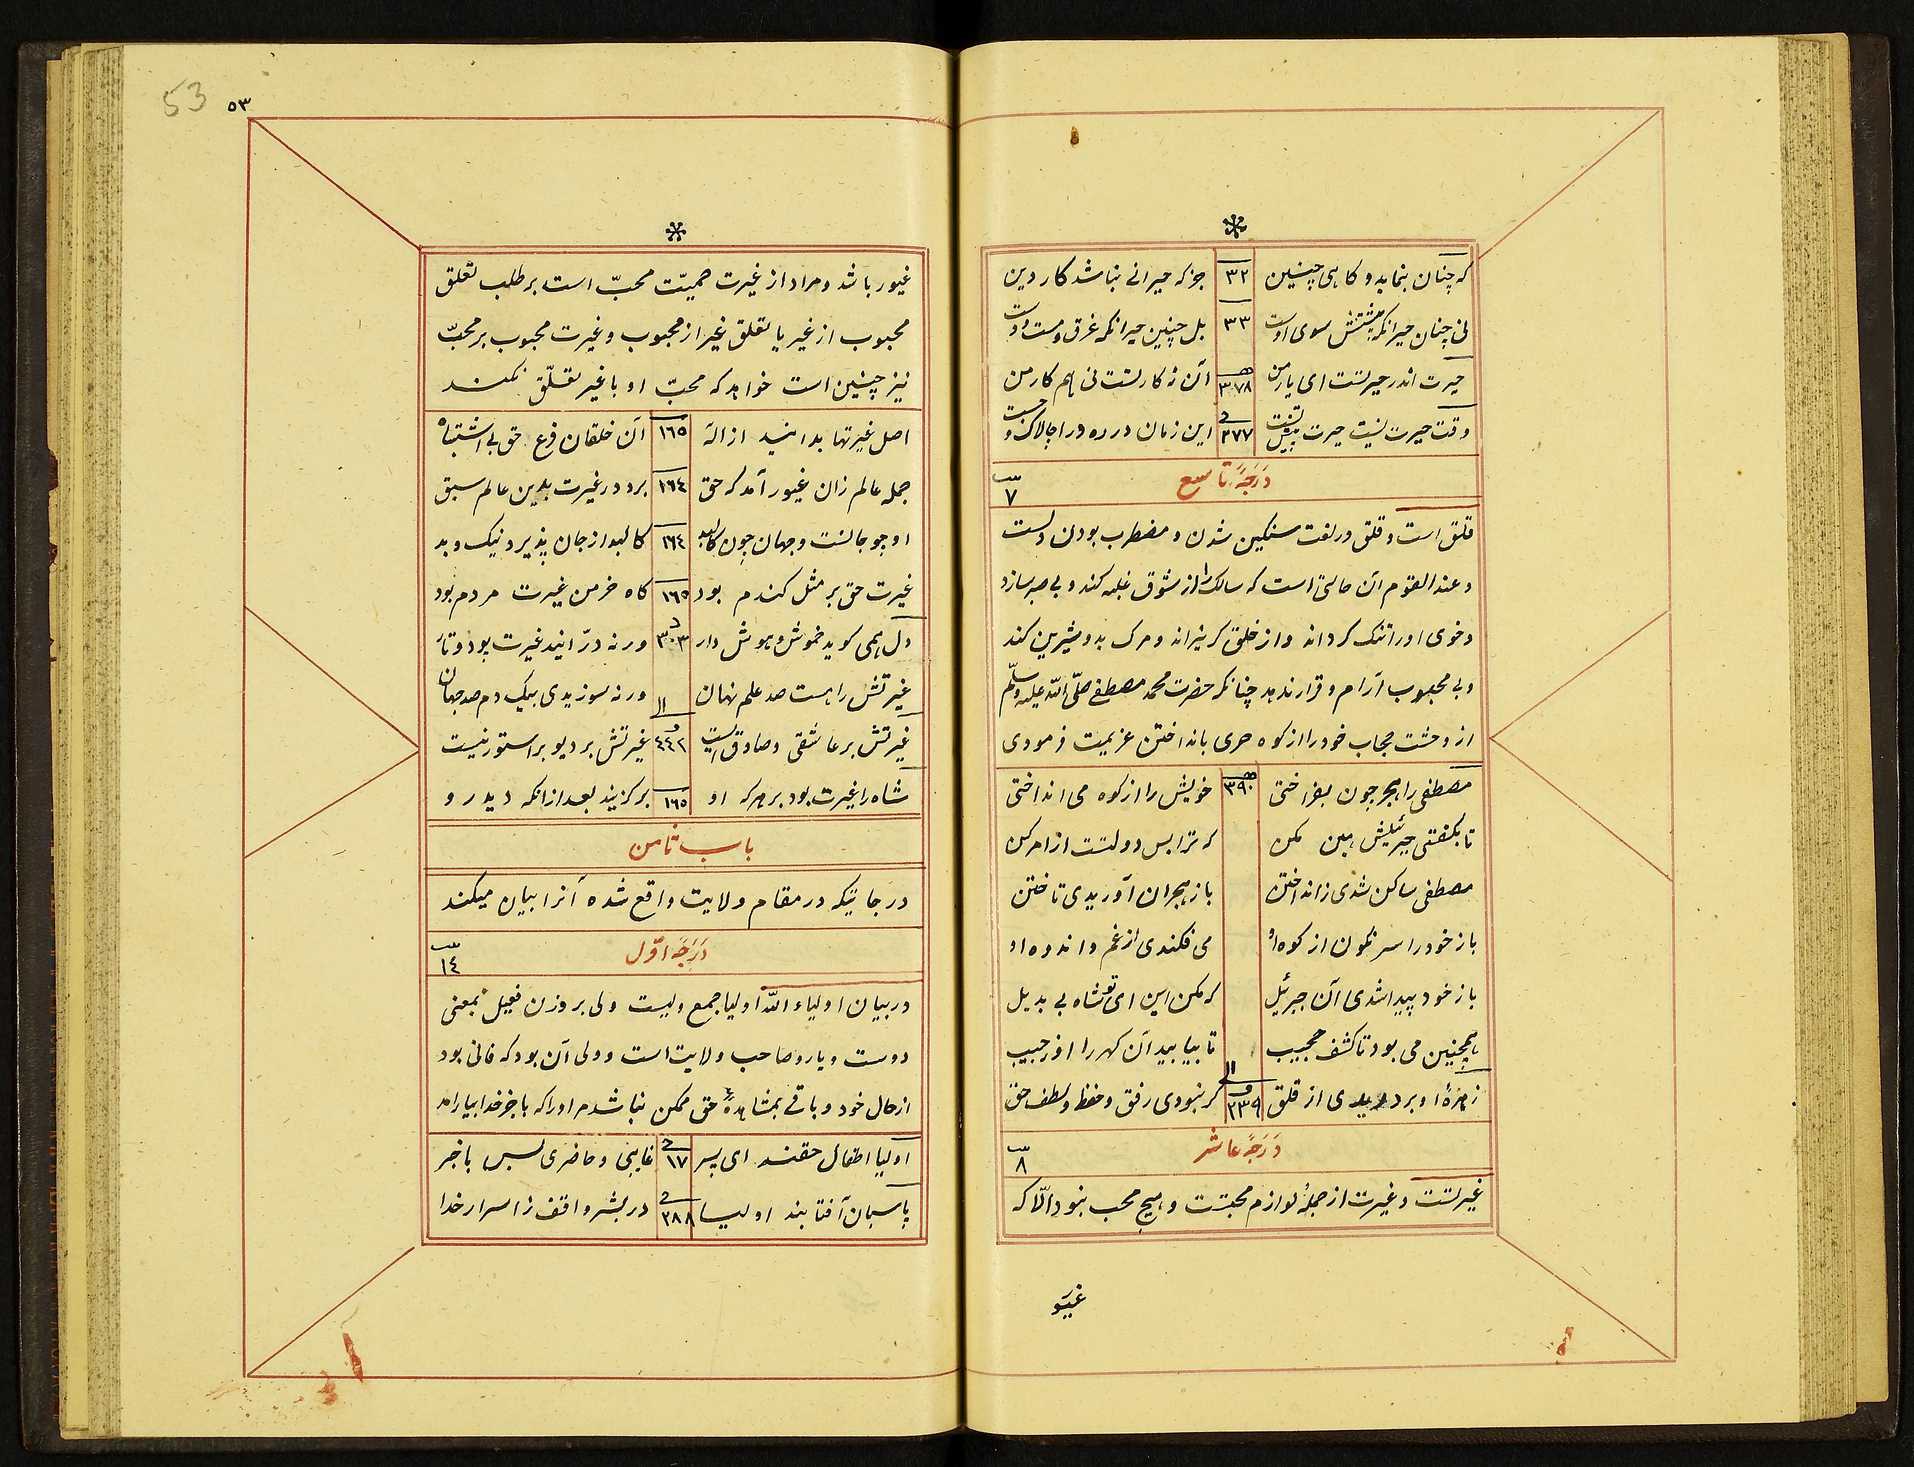 که چنان بنماید و کاهی چنین ٣٢ جز که حیرانی نباشد کار دین
نی چنان حیرانکه پشتش سوی اوست ٣٣ بل چنین حیرانکه غرق و مست دوست
حیرت اندر حیرتست ای یار من ٣٧٨ آن نه کار تست نی هم کار من
وقت حیرت نیست حیرت پیش تست ٣٧٧ این زمان در ره درا چالاک و چست
دَرَجَهٔ تاسع
٧
قلق است و قلق در لغت سنکین شدن و مضطرب بودن دلست
و عند القوم آن حالتی است که سالک را از شوق غلبه کند و بی صبر سازد
و خوی او را تنک کرداند و از خلق کریزاند و مرک بدو شیرین کند
و بی محبوب آرام و قرار ندهد چنانکه حضرت محمد مصطفی صلّی الله علیه وسلّم
از وحشت حجاب خود را از کوه حری بانداختن عزیمت فرمودی
مصطفی را هجر چون بفراختی ٣٩٠ خویش را از کوه می انداختی
تا بکفتی جبرئیلش هین مکن که ترا بس دولتست از امر کن
مصطفی ساکن شدی زانداختن باز هجران آوریدی تاختن
باز خود را سرنکون از کوه او می فکندی از غم و اندوه او
باز خود پیدا شدی آن جبرئیل که مکن این ای تو شاه بی بدیل
همچنین می بود تا کشف حجیب تا بیابید آن کهر را او ز جیب
زهرهٔ او بردریدی از قلق ٢٣٩ کر نبودی رفق و حفظ و لطف حق
دَرَجَهٔ عاشر
٨
غیرتست و غیرت از جملهٔ لوازم محبتست و هیچ محب نبود الّا که
غیو
53 ٥٣
غیور باشد و مراد از غیرت حمیّت محبّ است بر طلب تعلق
محبوب از غیر یا تعلق غیر از محبوب و غیرت محبوب بر محبّ
نیز چنین است خواهد که محبّ او با غیر تعلّق نکند
اصل غیرتها بدانید از اله ١٦٥ آن خلقان فرع حق بی اشتباه
جمله عالم زان غیور آمد که حق ١٦٤ برد در غیرت بدین عالم سبق
او چو جانست و جهان چون کالبد ١٦٤ کالبد از جان پذیرد نیک و بد
غیرت حق بر مثل کندم بود ١٦٥ کاه خرمن غیرت مردم بود
دل همی کوید خموش و هوش دار ٣٠٣ ورنه درّانید غیرت پود و تار
غیرتش را هست صد علم نهان ورنه سوزیدی بیک دم صد جهان
غیرتش بر عاشقی و صادقیست ٤٤٢ غیرتش بر دیو بر استور نیست
شاه را غیرت بود بر هر که او ١٦٥ برکزیند بعد از انکه دید رو
باب ثامن
درجاتیکه در مقام ولایت واقع شده آنرا بیان میکند
دَرَجَهٔ اوّل
١٤
در بیان اولیاء الله اولیا جمع ولیست ولی بر وزن فعیل بمعنی
دوست و یار و صاحب ولایت است و ولی آن بود که فانی بود
از حال خود و باقی بمشاهدهٔ حق ممکن نباشد مر او را که با جز خدا بیارامد
اولیا اطفال حقند ای پسر ١٧ غایبی و حاضری بس با خبر
پاسبان آفتابند اولیا ٣٨٨ در بشر واقف ز اسرار خدا